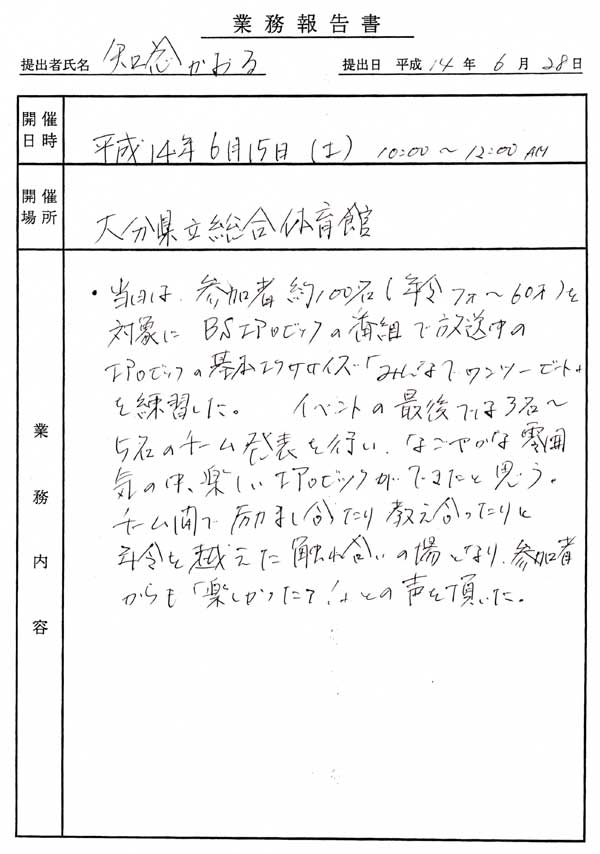 業務報告書
提出者氏名 知念かおる 提出日 平成 14 年 6 月 28 日
開催日時 平成14年6月15日(土) 10:00～12:00 AM
開催場所 大分県立総合体育館
業務内容
・当日は、参加者約100名(年令7才～60才)を
対象にBSエアロビックの番組で放送中の
エアロビックの基本エクササイズ「みんなでワンツービート」
を練習した。 イベントの最後では3名～
5名のチーム発表を行い、なごやかな雰囲
気の中、楽しいエアロビックができたと思う。
チーム間で励まし合ったり教え合ったりと
年令を越えた触れ合いの場となり、参加者
からも「楽しかった?!」との声を頂いた。